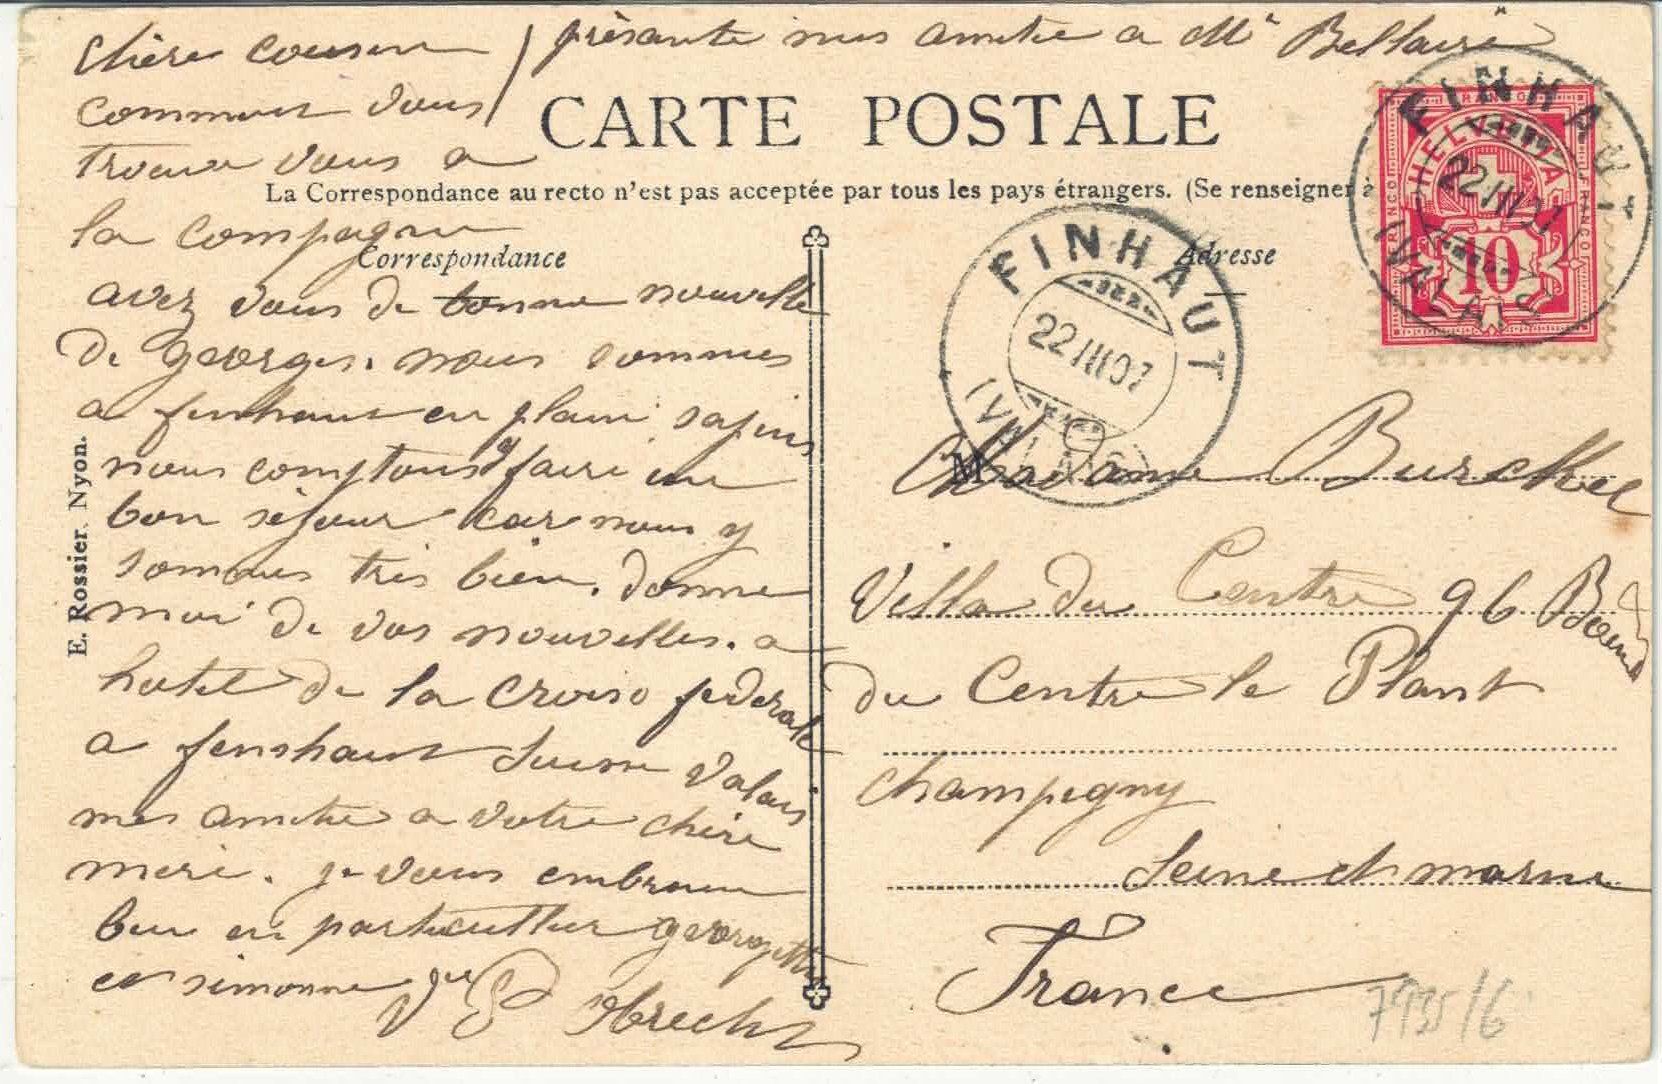 chère cousine
commant vous
trouve vous a
la compagne
avez vous de bonne nouvelle
de georges. nous sommes
a finhaut en plain sapins
nous comptons y faire un
bon séjour car nous y
sommes très bien. donne
moi de vos nouvelles. a
hotel de la croix federale
a finshaut Suisse Valais
mes amitie a votre chère
mère. je vous embrasse
bien en particullier georgette
et simonne
présante mes amitie a Mr Bellaire
CARTE POSTALE
La Correspondance au recto n'est pas acceptée par tous les pays étrangers. (Se renseigner à
Correspondance
Adresse
E. Rossier. Nyon.
FRANCO
HELVETIA
FRANCO
10
FINHAUT
22 III 07
(VALAIS)
FINHAUT
22 III 07
(VALAIS)
M
Madame Burckel
Villa du Centre 96 Boul
du Centre le Plant
champigny
Seine et marne
France
7935/6